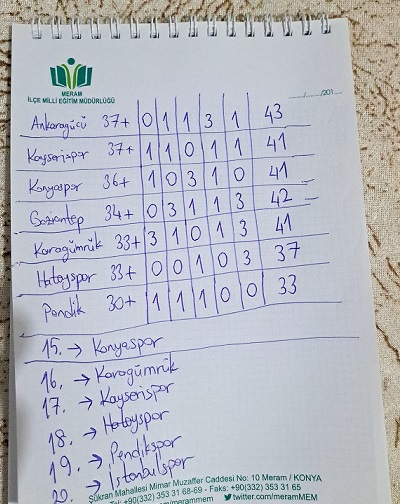 MERAM
İLÇE MİLLİ EĞİTİM MÜDÜRLÜĞÜ
..../..../201...
Ankaragücü 37+ 0 1 1 3 1 43
Kayserispor 37+ 1 1 0 1 1 41
Konyaspor 36+ 1 0 3 1 0 41
Gaziantep 34+ 0 3 1 1 3 42
Karagümrük 33+ 3 1 0 1 3 41
Hatayspor 33+ 0 0 1 0 3 37
Pendik 30+ 1 1 1 0 0 33
15. → Konyaspor
16. → Karagümrük
17. → Kayserispor
18. → Hatayspor
19. → Pendikspor
20. → İstanbulspor
Şükran Mahallesi Mimar Muzaffer Caddesi No: 10 Meram / KONYA
Tel: +90(332) 353 31 68-69 - Faks: +90(332) 353 31 65
/merammem twitter.com/meramMEM